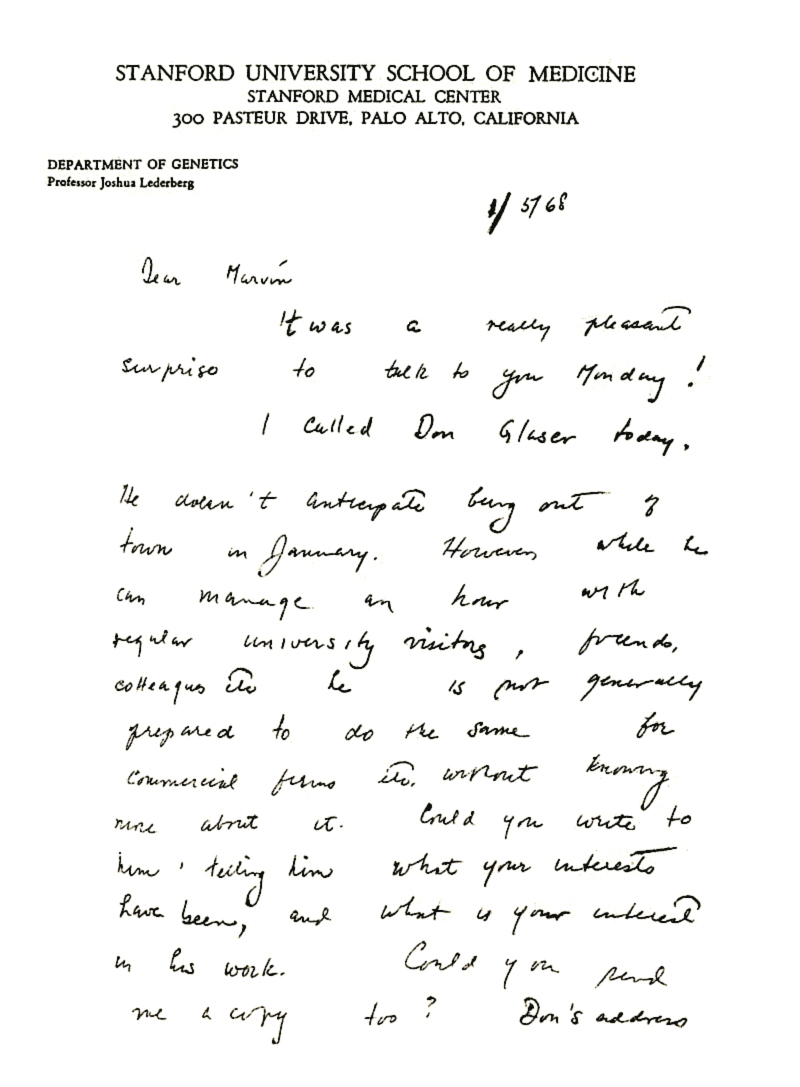 STANFORD UNIVERSITY SCHOOL OF MEDICINE
STANFORD MEDICAL CENTER
300 PASTEUR DRIVE, PALO ALTO, CALIFORNIA
DEPARTMENT OF GENETICS
Professor Joshua Lederberg
1/5/68
Dear Marvin
It was a really pleasant
surprise to talk to you Monday!
I called Don Glaser today.
He doesn't anticipate being out of
town in January. However, while he
can manage an hour with
regular university visitors, friends,
colleagues etc he is not generally
prepared to do the same for
commercial firms etc. without knowing
more about it. Could you write to
him, telling him what your interests
have been, and what is your interest
in his work. Could you send
me a copy too? Don's address